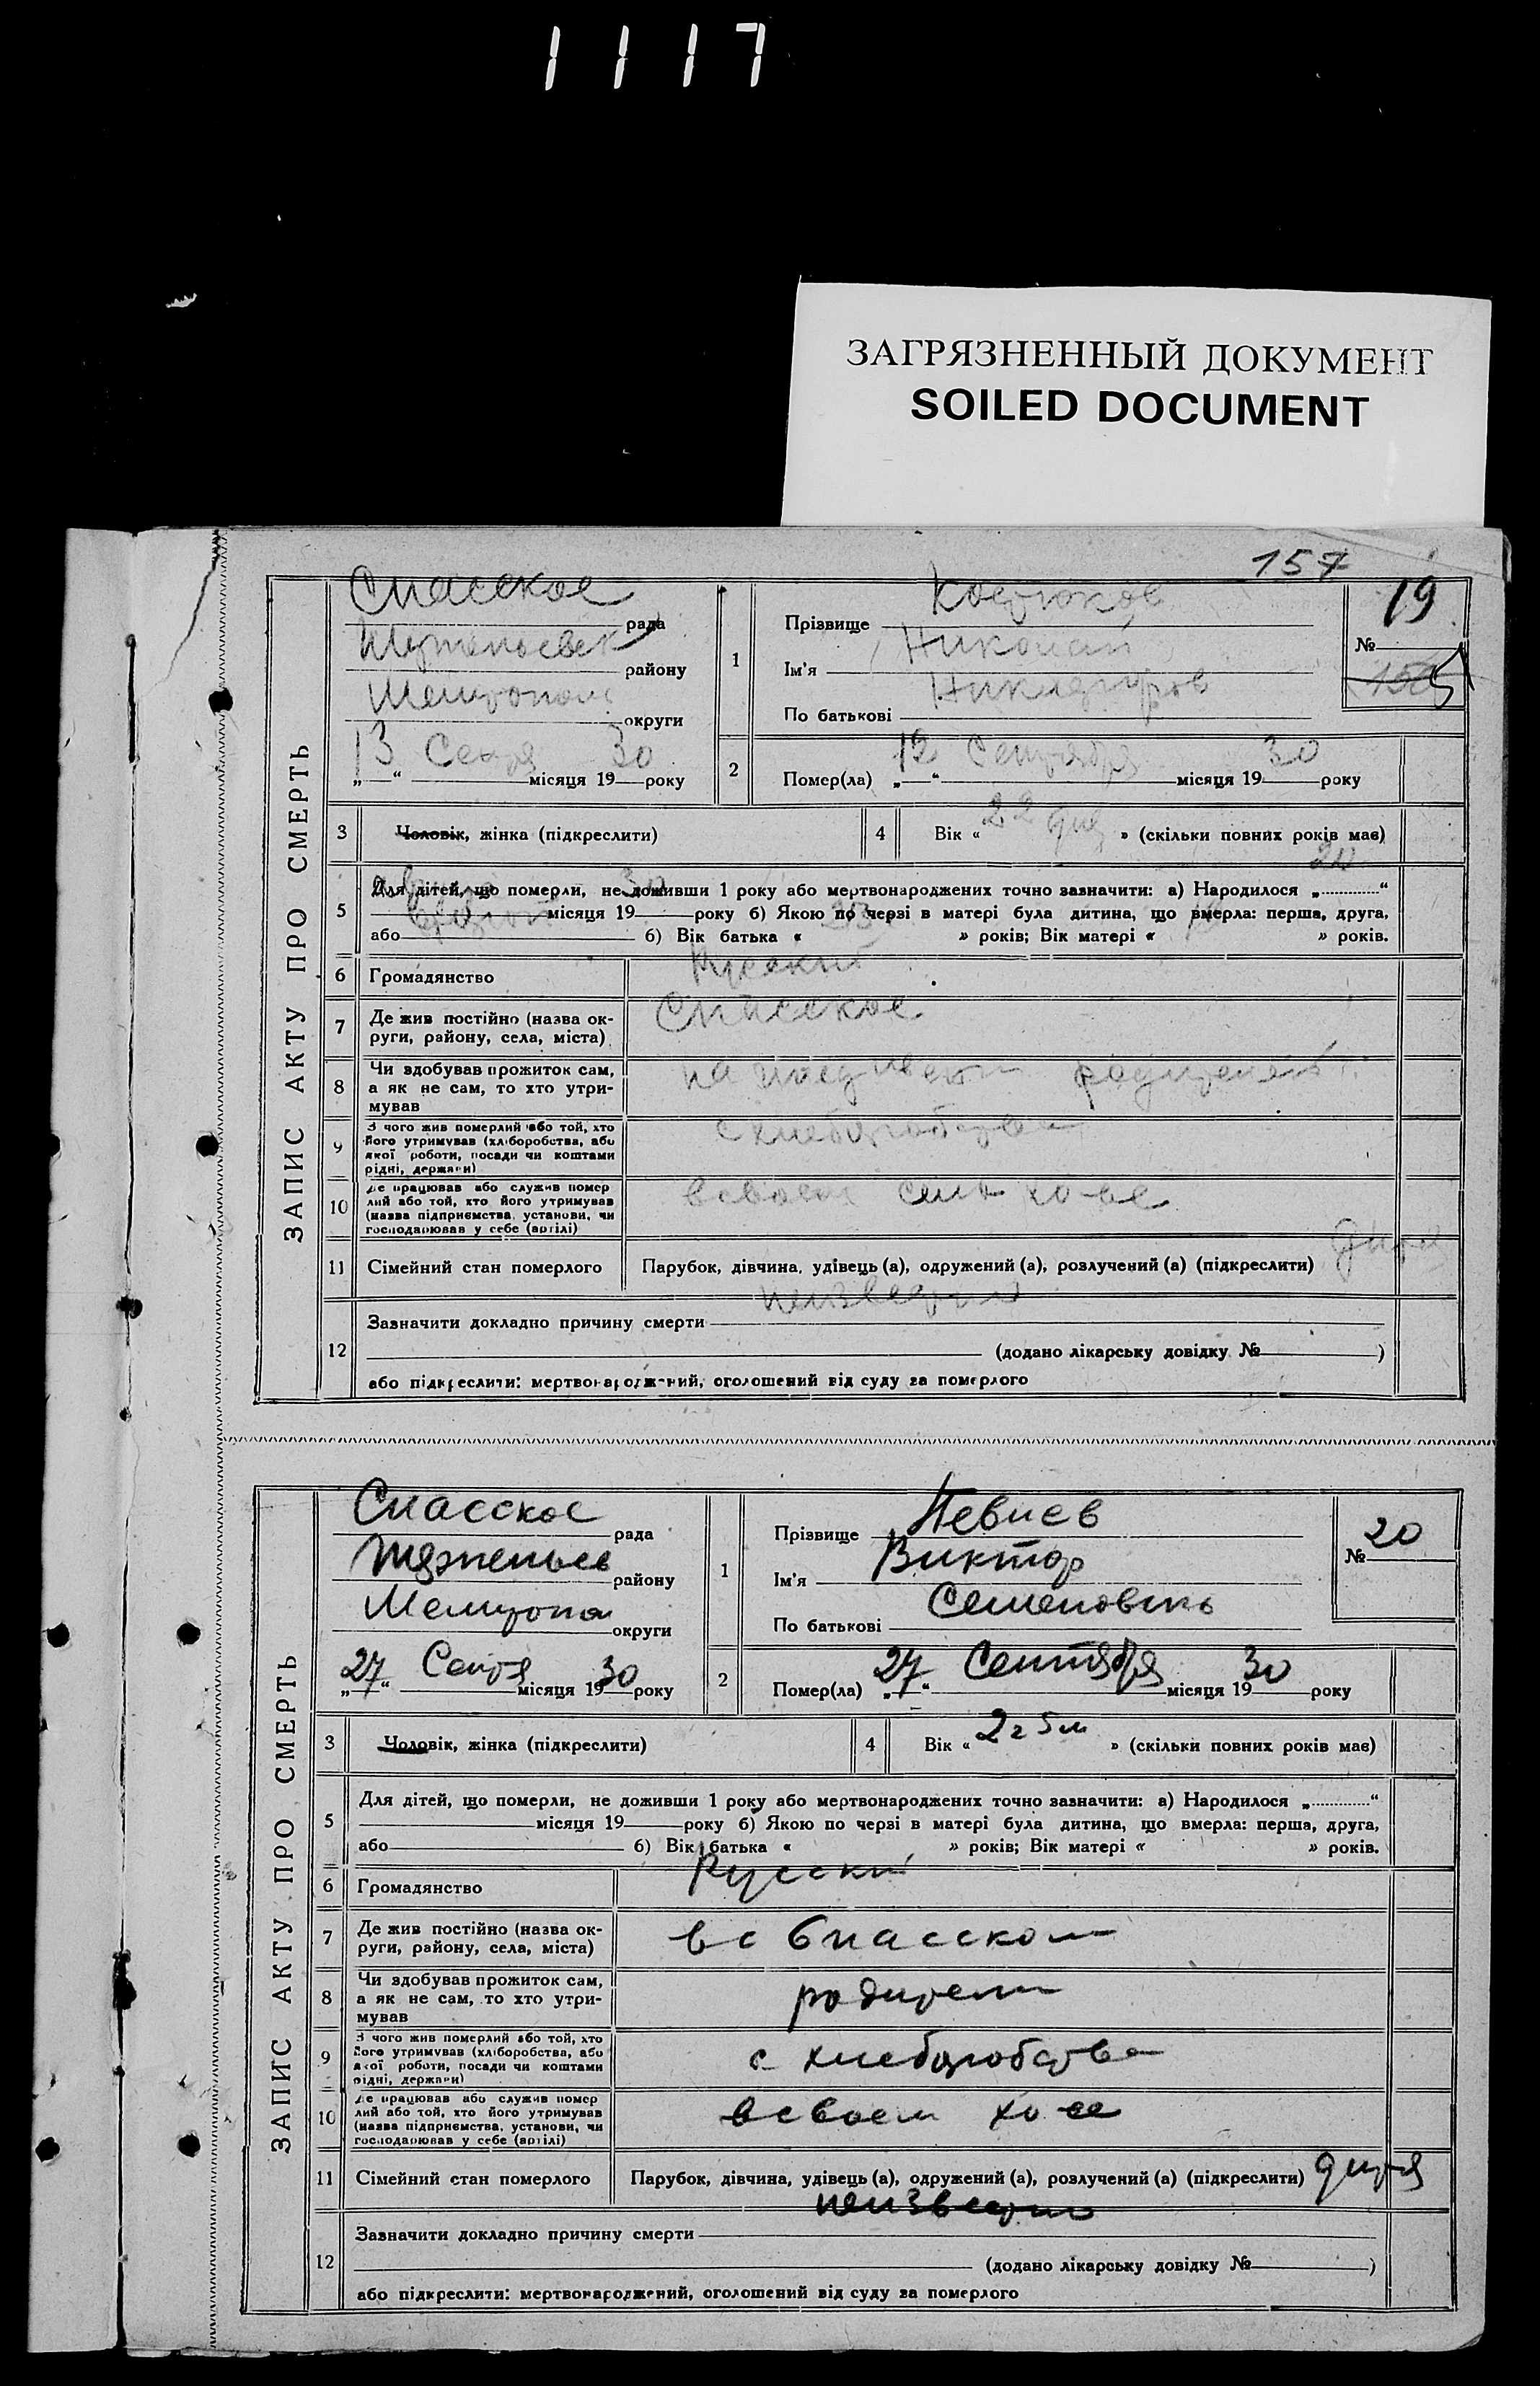 1117
ЗАГРЯЗНЕННЫЙ ДОКУМЕНТ
SOILED DOCUMENT
157
ЗАПИС АКТУ ПРО СМЕРТЬ
Спасское рада
району
округи
13 Сентя місяця 1930 року
1
Прізвище Костюков
Ім'я Николай
По батькові
№ 19
2
Помер(ла) „12“ Сентября місяця 1930 року
3 Чоловік, жінка (підкреслити)
4 Вік « 22 дня » (скільки повних років має)
5 Для дітей, що померли, не доживши 1 року або мертвонароджених точно зазначити: а) Народилося „20“
місяця 1930 року б) Якою по черзі в матері була дитина, що вмерла: перша, друга,
або б) Вік батька « » років; Вік матері « » років.
6 Громадянство Русский
7 Де жив постійно (назва округи, району, села, міста) Спасское
8 Чи здобував прожиток сам, а як не сам, то хто утримував
9 З чого жив померлий або той, хто його утримував (хліборобства, або якої роботи, посади чи коштами рідні, держави) с хлеборобства
10 Де працював або служив померлий або той, хто його утримував (назва підприємства, установи, чи господарював у себе (артілі) в своем хо-ве
11 Сімейний стан померлого Парубок, дівчина, удівець (а), одружений (а), розлучений (а) (підкреслити) дитя
12 Зазначити докладно причину смерти неизвестно
(додано лікарську довідку № )
або підкреслити: мертвонароджений, оголошений від суду за померлого
ЗАПИС АКТУ ПРО СМЕРТЬ
Спасское рада
району
Мелитопол округи
„27“ Сентя місяця 1930 року
1
Прізвище Певнев
Ім'я Виктор
По батькові Семенович
№ 20
2
Помер(ла) „27“ Сентября місяця 1930 року
3 Чоловік, жінка (підкреслити)
4 Вік « 2 г 5 м » (скільки повних років має)
5 Для дітей, що померли, не доживши 1 року або мертвонароджених точно зазначити: а) Народилося „ “
місяця 19 року б) Якою по черзі в матері була дитина, що вмерла: перша, друга,
або б) Вік батька « » років; Вік матері « » років.
6 Громадянство Русский
7 Де жив постійно (назва округи, району, села, міста) в с Спасском
8 Чи здобував прожиток сам, а як не сам, то хто утримував родители
9 З чого жив померлий або той, хто його утримував (хліборобства, або якої роботи, посади чи коштами рідні, держави) с хлеборобства
10 Де працював або служив померлий або той, хто його утримував (назва підприємства, установи, чи господарював у себе (артілі) в своем хо-ве
11 Сімейний стан померлого Парубок, дівчина, удівець (а), одружений (а), розлучений (а) (підкреслити) дитя
12 Зазначити докладно причину смерти неизвестно
(додано лікарську довідку № )
або підкреслити: мертвонароджений, оголошений від суду за померлого